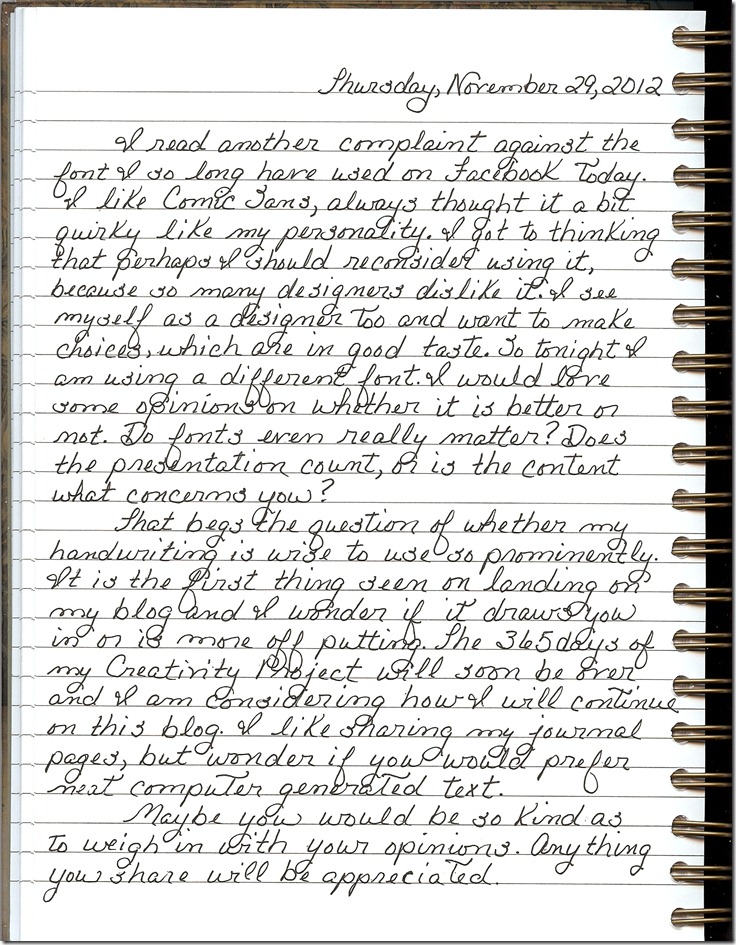 Thursday, November 29, 2012
I read another complaint against the
font I so long have used on Facebook Today.
I like Comic Sans, always thought it a bit
quirky like my personality. I got to thinking
that perhaps I should reconsider using it,
because so many designers dislike it. I see
myself as a designer too and want to make
choices, which are in good taste. So tonight I
am using a different font. I would love
some opinions on whether it is better or
not. Do fonts even really matter? Does
the presentation count, or is the content
what concerns you?
That begs the question of whether my
handwriting is wise to use so prominently.
It is the first thing seen on landing on
my blog and I wonder if it draws you
in or is more off putting. The 365 days of
my Creativity Project will soon be over
and I am considering how I will continue
on this blog. I like sharing my journal
pages, but wonder if you would prefer
neat computer generated text.
Maybe you would be so kind as
to weigh in with your opinions. Anything
you share will be appreciated.